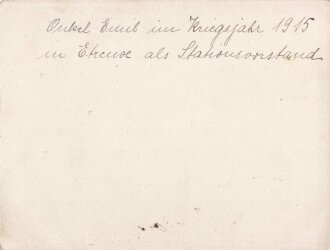 Onkel Emil im Kriegsjahr 1915
in Etreux als Stationsvorstand